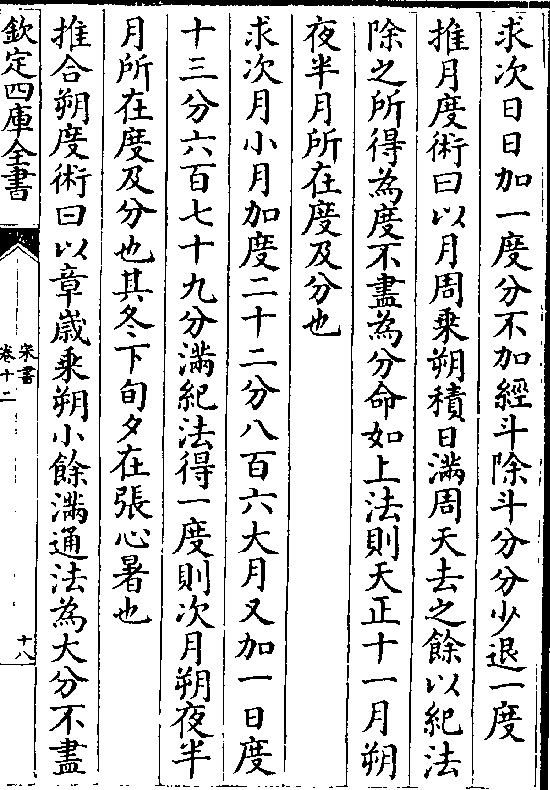 求次日日加一度分不加經斗除斗分分少退一度
推月度術曰以月周乘朔積日滿周天去之餘以紀法
除之所得為度不盡為分命如上法則天正十一月朔
夜半月所在度及分也
求次月小月加度二十二分八百六大月又加一日度
十三分六百七十九分滿紀法得一度則次月朔夜半
月所在度及分也其冬下旬夕在張心暑也
推合朔度術曰以章歲乘朔小餘滿通法為大分不盡
欽定四庫全書
宋書
卷十二
十八